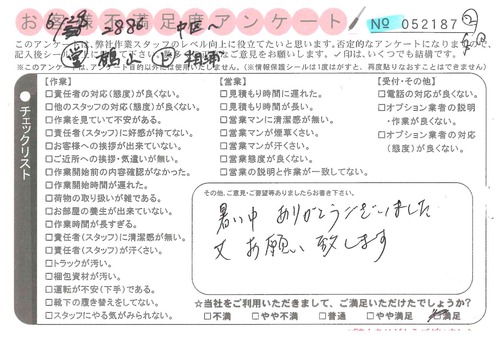 お客様不満足度アンケート
No 052187
2886
このアンケートは、弊社作業スタッフのレベル向上に役立てたいと思います。否定的なアンケートになりますので、
※このアンケートは、アンケート目的以外には使用いたしません。(情報保護シールは1度はがすと、再度貼りなおすことはできません)
チェックリスト
【作業】
□責任者の対応(態度)が良くない。
□他のスタッフの対応(態度)が良くない。
□作業を見ていて不安がある。
□責任者(スタッフ)に好感が持てない。
□お客様への挨拶が出来ていない。
□ご近所への挨拶・気遣いが無い。
□作業開始前の内容確認がなかった。
□作業開始時間が遅れた。
□荷物の取り扱いが雑である。
□お部屋の養生が出来ていない。
□作業時間が長すぎる。
□責任者(スタッフ)に清潔感が無い。
□責任者(スタッフ)が汗くさい。
□トラックが汚い。
□梱包資材が汚い。
□運転が不安(下手)である。
□靴下の履き替えをしてない。
□スタッフにやる気がみられない。
【営業】
□見積もり時間に遅れた。
□見積もり時間が長い。
□営業マンに清潔感が無い。
□営業マンが煙草くさい。
□営業マンが汗くさい。
□営業態度が良くない。
□営業の説明と作業が一致してない。
【受付・その他】
□電話の対応が良くない。
□オプション業者の説明
・作業が良くない。
□オプション業者の対応
(態度)が良くない。
その他、ご意見・ご要望等ありましたらお書き下さい。
暑い中 ありがとうございました
又 お願い致します
☆当社をご利用いただきまして、ご満足いただけたでしょうか?
□不満 □やや不満 □普通 □やや満足 □満足